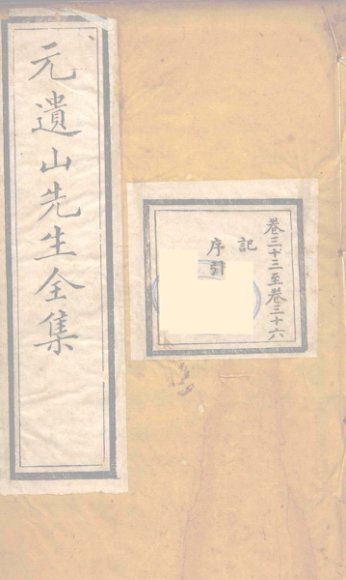 元遺山先生全集
卷三十三至卷三十六
記
序
引